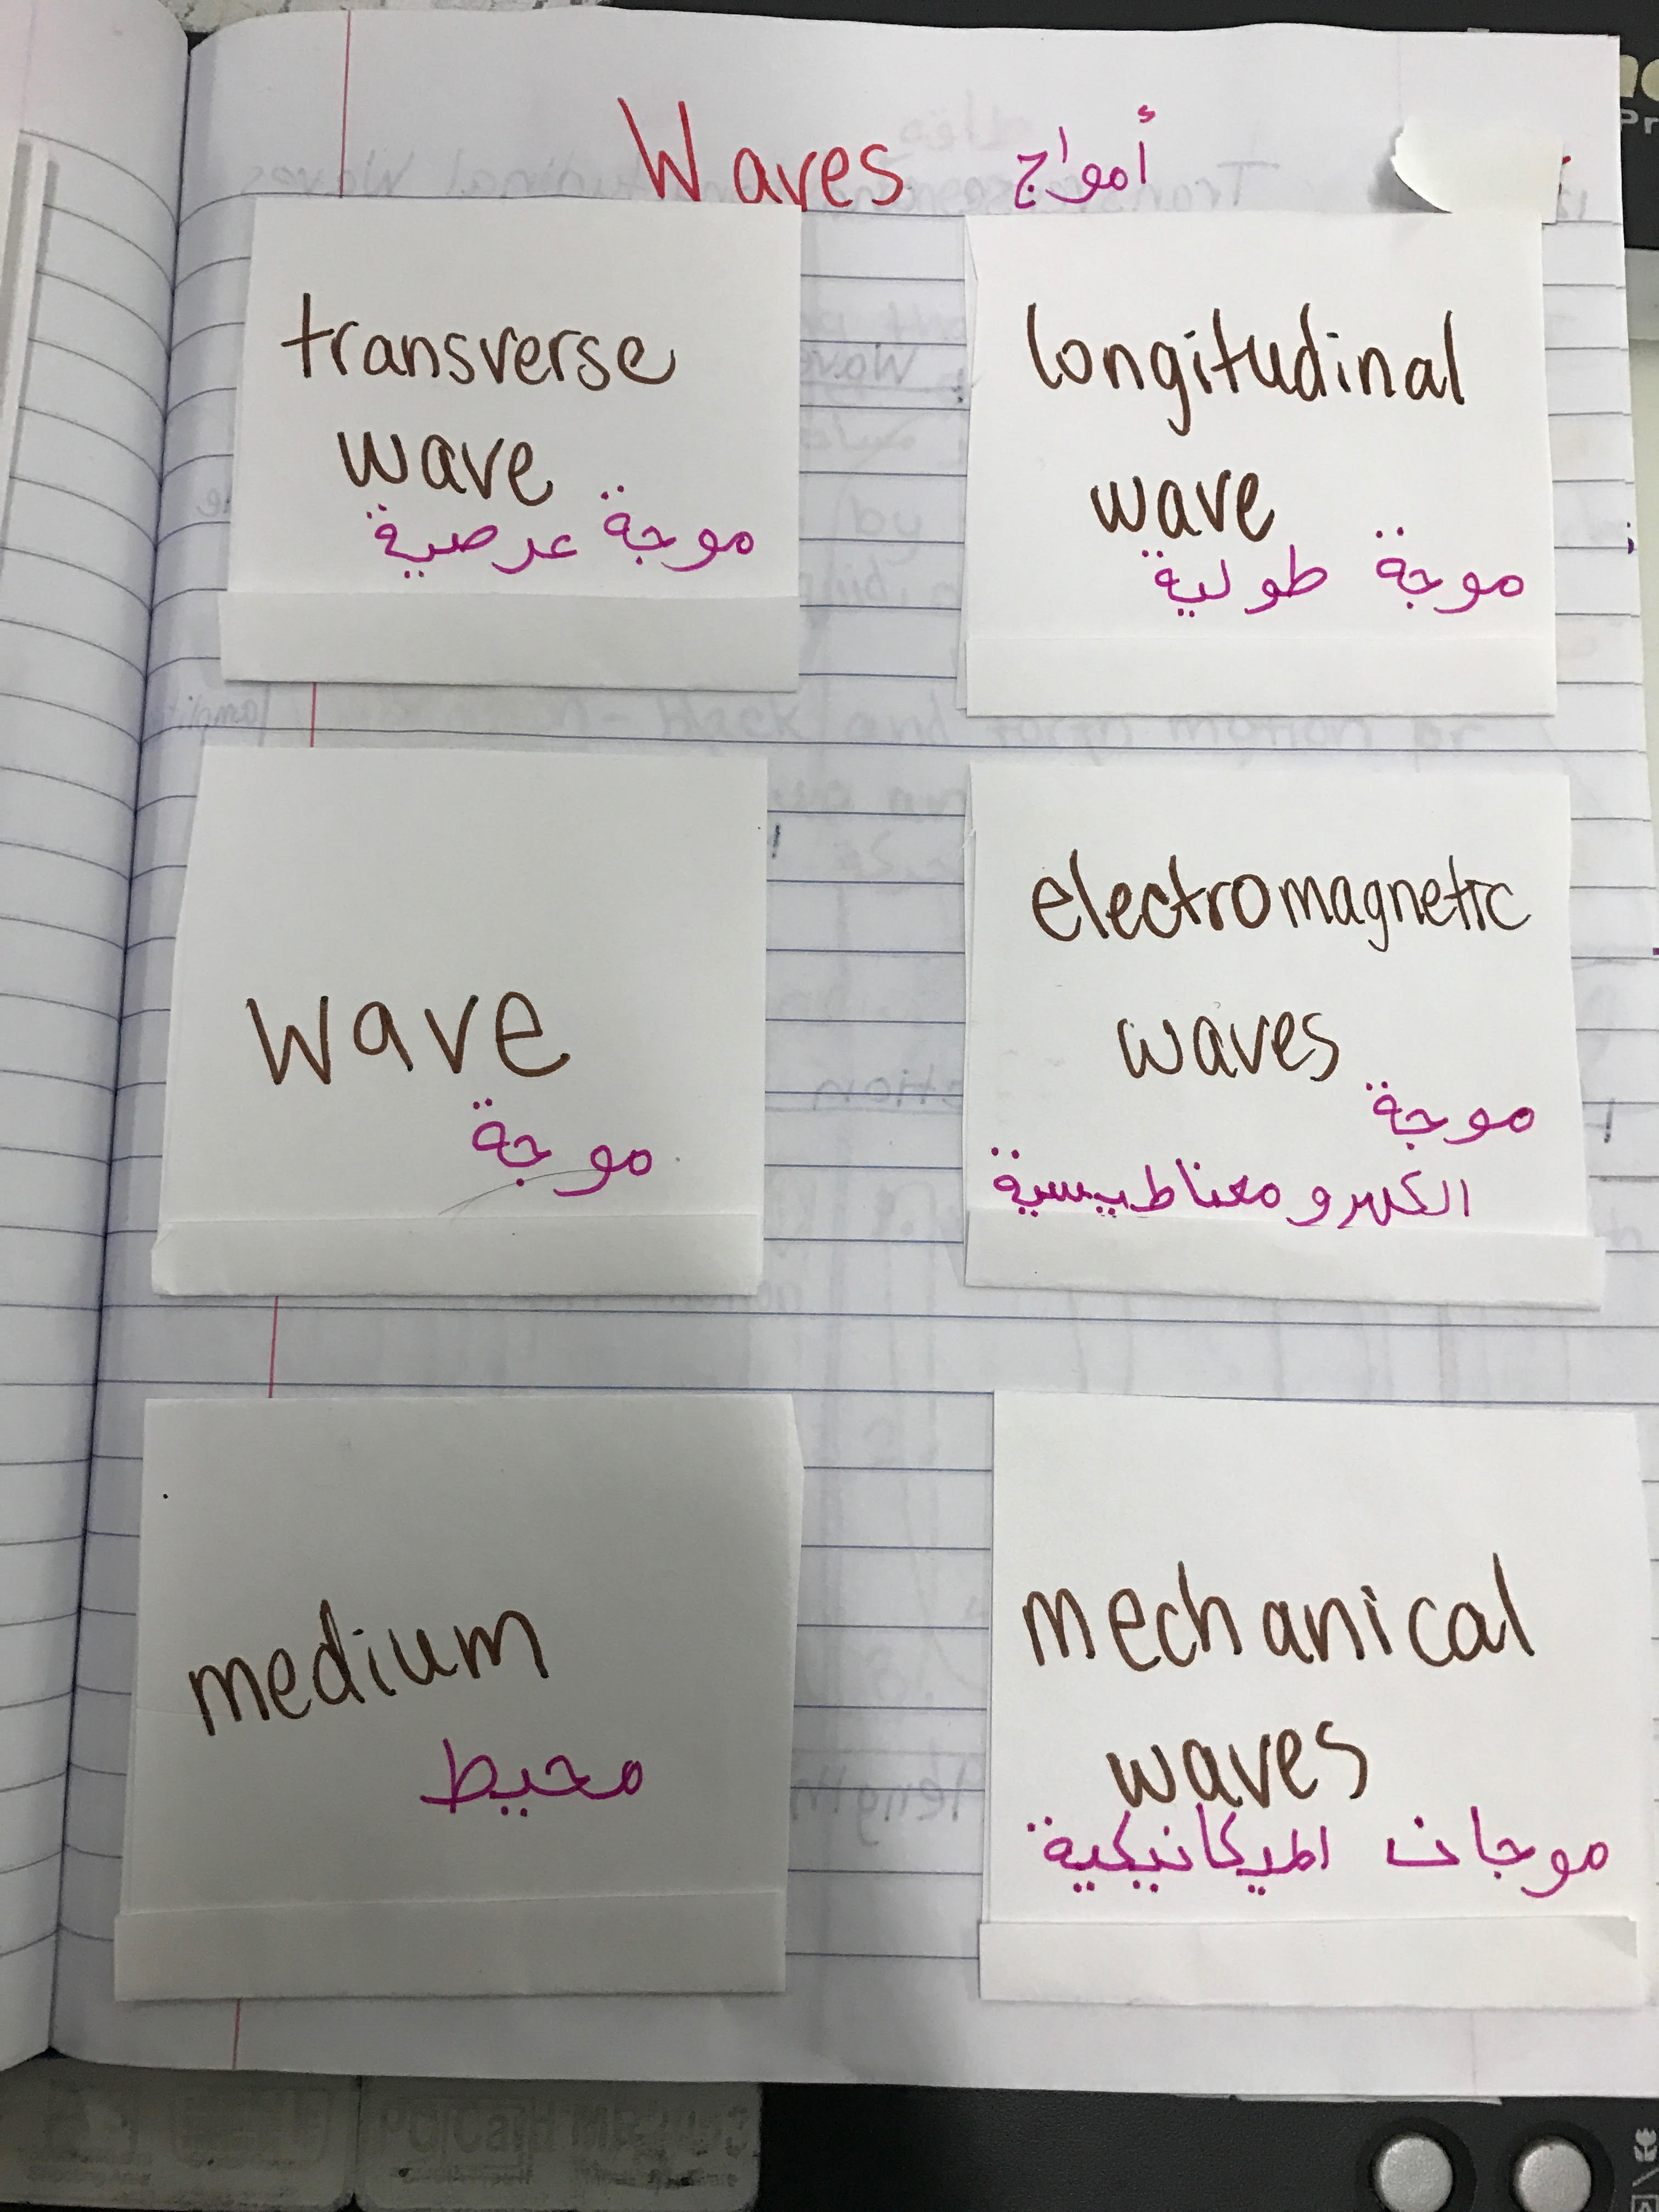 Waves أمواج
transverse
wave
موجة عرصية
longitudinal
wave
موجة طولية
wave
موجة
electromagnetic
waves
موجة
الكهرو معناطيسية
medium
محيط
mechanical
waves
موجات الميكانيكية